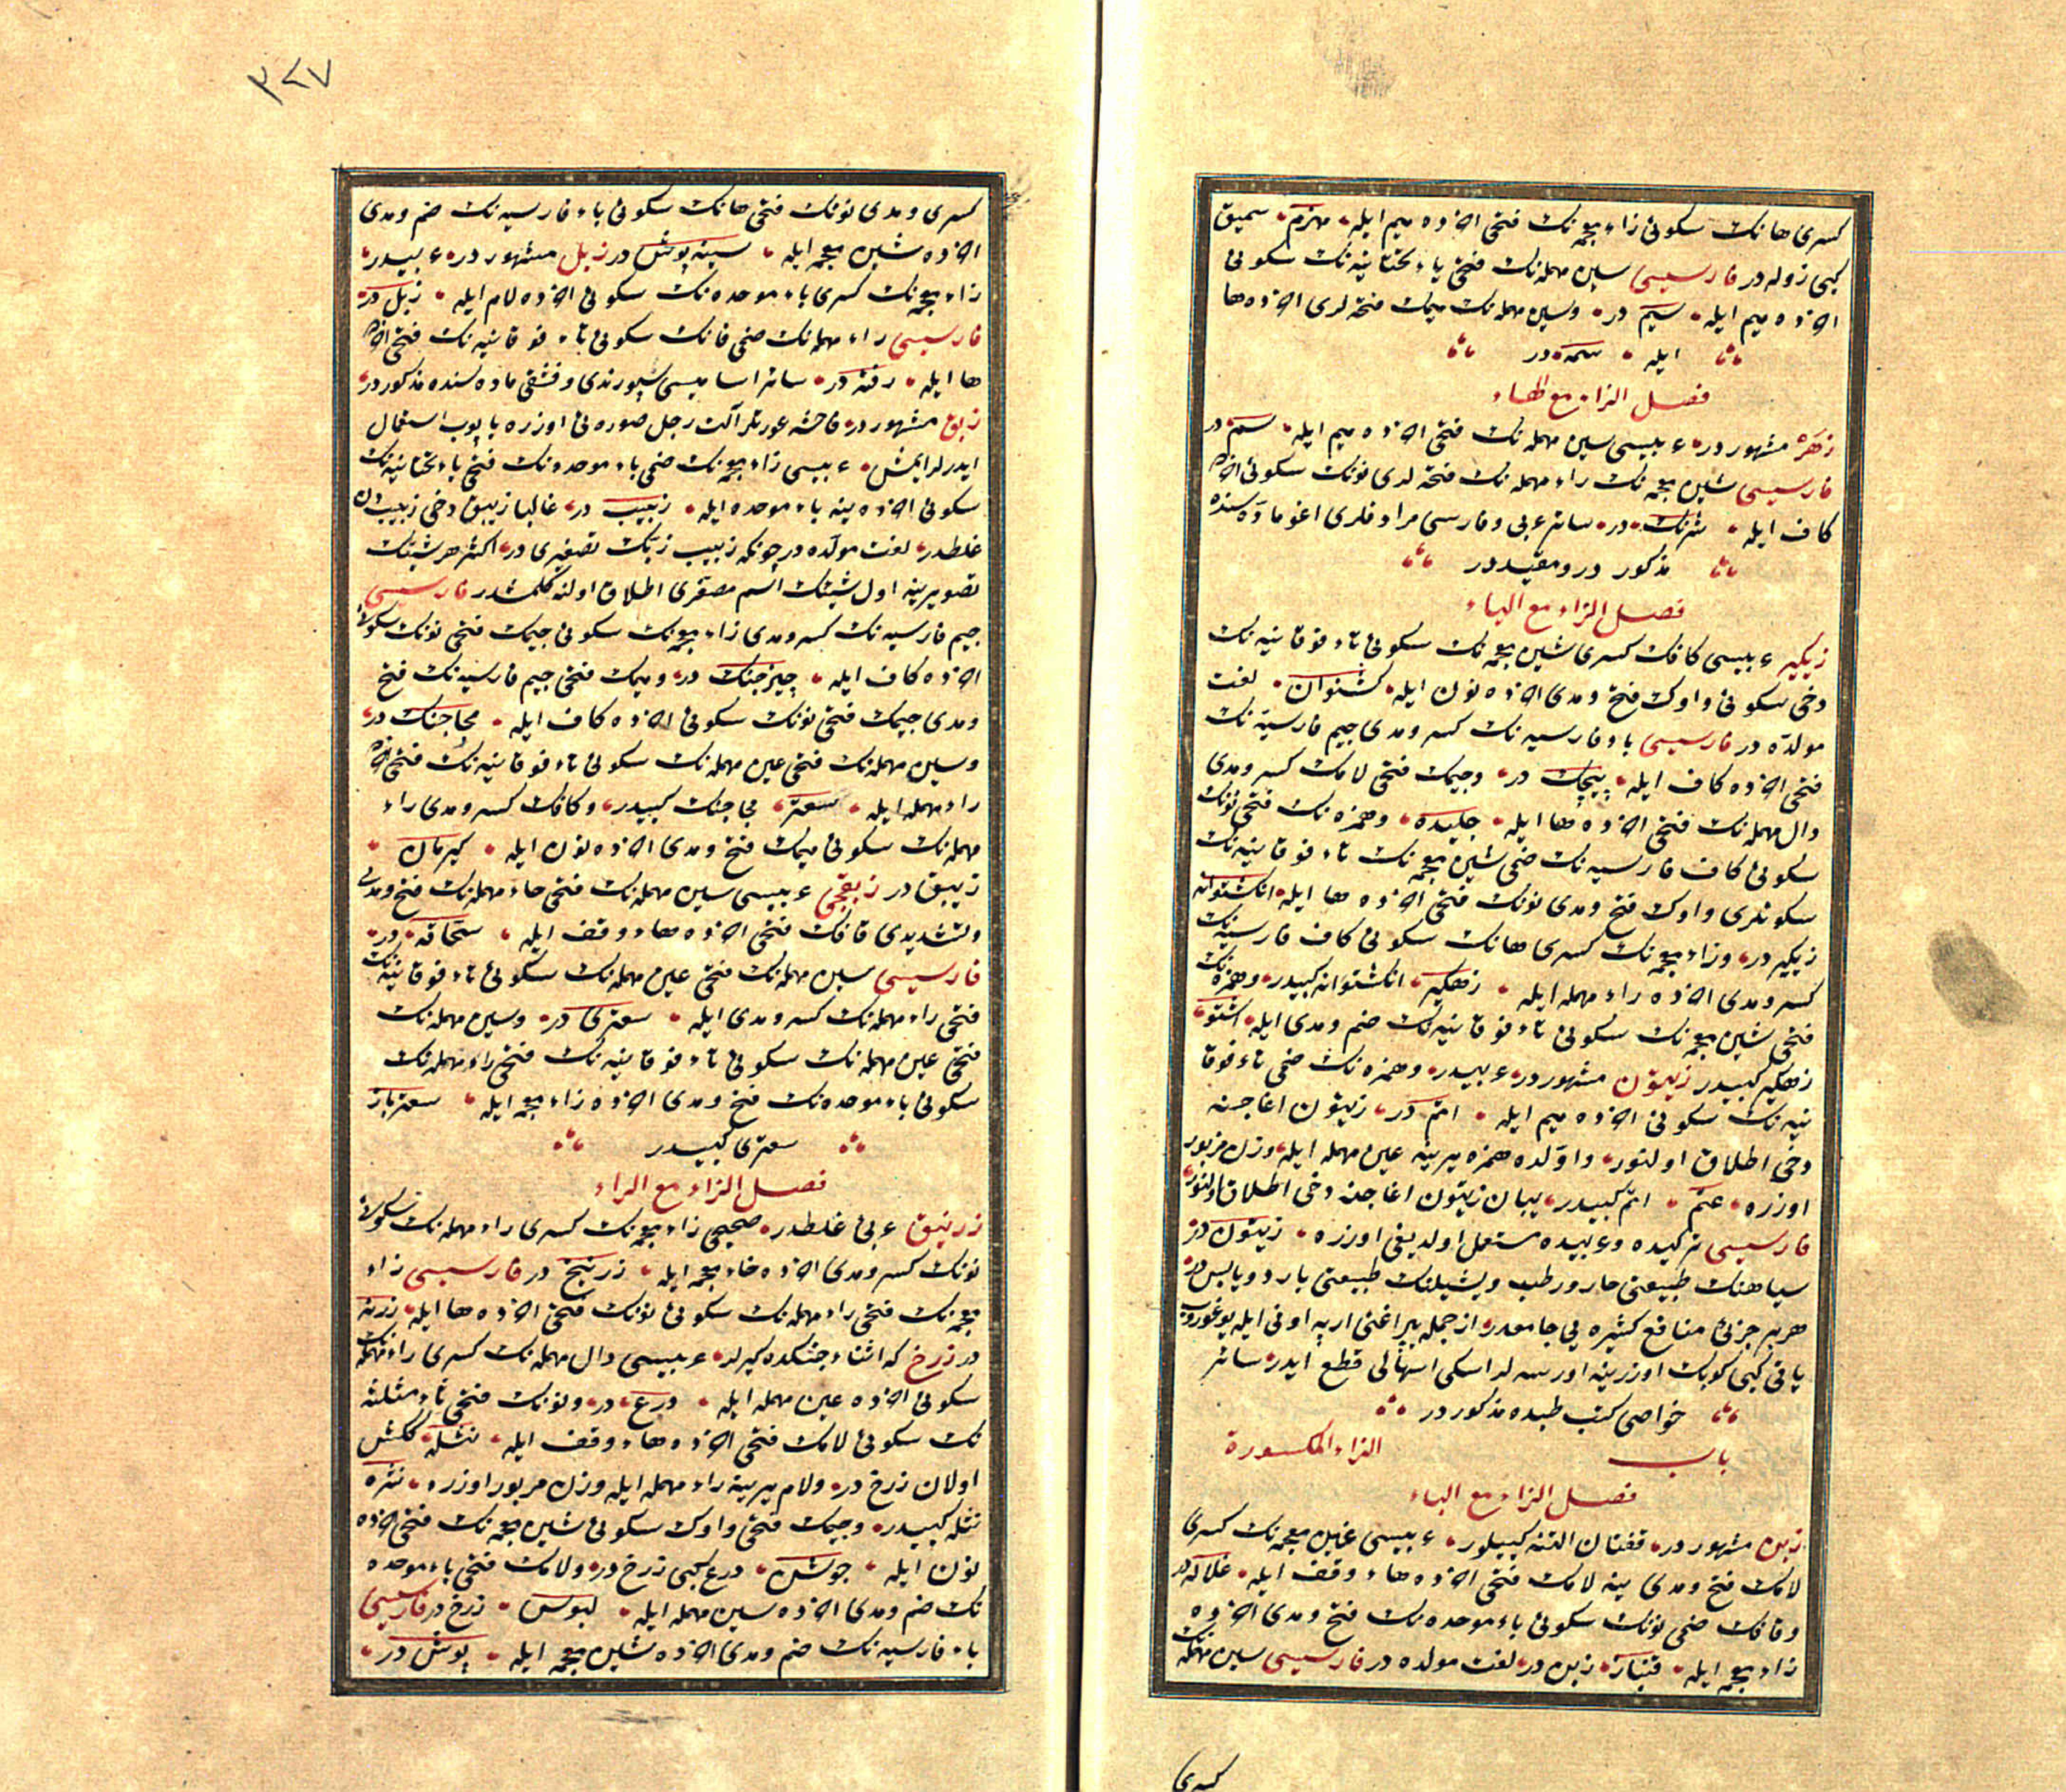 كسری هانك سكونی زاء معجمه نك فتحی آخرده ميم ايله مهزم سميق
كبی زوله در فارسيسی سين مهمله نك فتحی ياء تحتانيه نك سكونی
آخرده ميم ايله سيم در وسين مهمله نك ميمك فتحه لری آخرده ها
ايله سمه در
فصل الزاء مع الهاء
زهر مشهور در عربيسی سين مهمله نك فتحی آخرده ميم ايله سم در
فارسيسی شين معجمه نك راء مهمله نك فتحه لری نونك سكونی آخرده
كاف ايله شرنك در سائر عربی وفارسی مرادفلری اغو ماده سنده
مذكور در ومقيد در
فصل الزاء مع الياء
زيكير عربيسی كافك كسری شين معجمه نك سكونی تاء فوقانيه نك
دخی سكونی واوك فتح ومدی آخرده نون ايله كشتوان لغت
مولده در فارسيسی باء فارسيه نك كسر ومدی جيم فارسيه نك
فتحی آخرده كاف ايله پيچك در وجيمك فتحی لامك كسر ومدی
دال مهمله نك فتحی آخرده ها ايله جليده وهمزه نك فتحی نونك
سكونی كاف فارسيه نك ضمی شين معجمه نك تاء فوقانيه نك
سكونلری واوك فتح ومدی نونك فتحی آخرده ها ايله انكشتوانه
زيكير در وزاء معجمه نك كسری هانك سكونی كاف فارسيه نك
كسر ومدی آخرده راء مهمله ايله زهكير انكشتوانه كبيدر وهمزه نك
فتحی شين معجمه نك سكونی تاء فوقانيه نك ضم ومدی ايله اشتو
زهكير كبيدر زيتون مشهور در عربيدر وهمزه نك ضمی تاء فوقا
نيه نك سكونی آخرده ميم ايله اتم در زيتون اغاجنه
دخی اطلاق اولنور واولده همزه يرينه عين مهمله ايله وزن مزبور
اوزره عتم اتم كبيدر يبان زيتون اغاجنه دخی اطلاق اولنور
فارسيسی تركيده وعربيده مستعمل اولديغی اوزره زيتون در
سياهنك طبيعتی حار ورطب ويشيلنك طبيعتی بارد ويابس در
هر بر جزئی منافع كثيره يی جامعدر از جمله يپراغنی ارپه اونی ايله يوغوروب
ياقی كبی كوبك اوزرينه اورسه لر اسكی اسهالی قطع ايدر سائر
خواصی كتب طبده مذكور در
باب الزاء المكسورة
فصل الزاء مع الباء
زبن مشهور در قفتان التنه كييلور عربيسی غين معجمه نك كسری
لامك فتح ومدی ينه لامك فتحی آخرده هاء وقف ايله غلاله در
وقافك ضمی نونك سكونی باء موحده نك فتح ومدی آخرده
زاء معجمه ايله قنباز زبن در لغت مولده در فارسيسی سين مهمله نك
كسری
٣٢٧
كسری ومدی نونك فتحی هانك سكونی باء فارسيه نك ضم ومدی
آخرده شين معجمه ايله سينه پوش در زبل مشهور در عربيدر
زاء معجمه نك كسری باء موحده نك سكونی آخرده لام ايله زبل در
فارسيسی راء مهمله نك ضمی فانك سكونی تاء فوقانيه نك فتحی آخرده
ها ايله رفته در سائر اساميسی سپورندی وفشقی ماده لسنده مذكور در
زبق مشهور در فاحشه عورتلر آلت رجل صورتی اوزره ياپوب استعمال
ايدرلر ايمش عربيسی زاء معجمه نك ضمی باء موحده نك فتحی ياء تحتانيه نك
سكونی آخرده ينه باء موحده ايله زبيب در غالبا زيبق دخی زبيبدن
غلطدر لغت مولده در چونكه زبيب زبك تصغيری در اكثر هر شيئك
تصويرينه اول شيئك اسم مصغری اطلاق اولنه كلمشدر فارسيسی
جيم فارسيه نك كسر ومدی زاء معجمه نك سكونی جيمك فتحی نونك سكونی
آخرده كاف ايله چيزجنك در وميمك فتحی جيم فارسيه نك فتح
ومدی جيمك فتحی نونك سكونی آخرده كاف ايله مچاجنك در
وسين مهمله نك فتحی عين مهمله نك سكونی تاء فوقانيه نك فتحی آخرده
راء مهمله ايله سعتر مچاجنك كبيدر وكافك كسر ومدی راء
مهمله نك سكونی ميمك فتح ومدی آخرده نون ايله كيرمان
زيبق در زبقجی عربيسی سين مهمله نك فتحی حاء مهمله نك فتح ومدی
وتشديدی قافك فتحی آخرده هاء وقف ايله سحاقه در
فارسيسی سين مهمله نك فتحی عين مهمله نك سكونی تاء فوقانيه نك
فتحی راء مهمله نك كسر ومدی ايله سعتری در وسين مهمله نك
فتحی عين مهمله نك سكونی تاء فوقانيه نك فتحی راء مهمله نك
سكونی باء موحده نك فتح ومدی آخرده زاء معجمه ايله سعترباز
سعتری كبيدر
فصل الزاء مع الراء
زرنيق عربی غلطدر صحيحی زاء معجمه نك كسری راء مهمله نك سكونی
نونك كسر ومدی آخرده خاء معجمه ايله زرنيخ در فارسيسی زاء
معجمه نك فتحی راء مهمله نك سكونی نونك فتحی آخرده ها ايله زرنه
در زرخ كه اثناء جنكده كيرلر عربيسی دال مهمله نك كسری راء مهمله نك
سكونی آخرده عين مهمله ايله درع در ونونك فتحی ثاء مثلثه
نك سكونی لامك فتحی آخرده هاء وقف ايله نثله كنش
اولان زرخ در ولام يرينه راء مهمله ايله وزن مزبور اوزره نثره
نثله كبيدر وجيمك فتحی واوك سكونی شين معجمه نك فتحی آخرده
نون ايله جوشن درع كبی زرخ در ولامك فتحی باء موحده
نك ضم ومدی آخرده سين مهمله ايله لبوس زرخ در فارسيسی
باء فارسيه نك ضم ومدی آخرده شين معجمه ايله پوش در